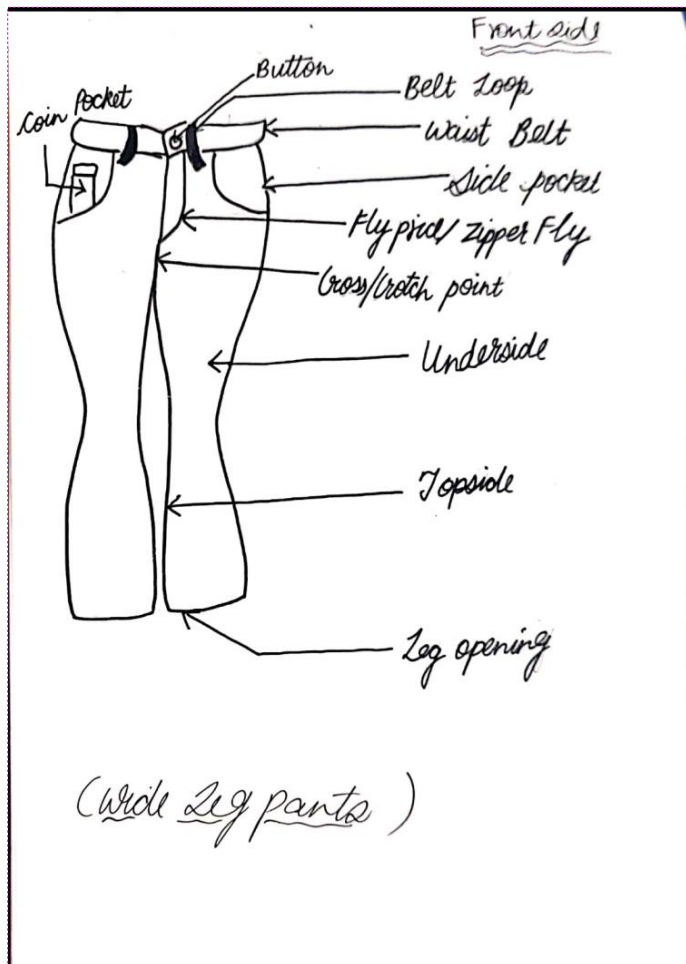 Front side
Button
Belt Loop
Coin Pocket
Waist Belt
Side pocket
Fly / Zipper Fly
Cross/Crotch point
Underside
Topside
Leg opening
(Wide Leg pants)